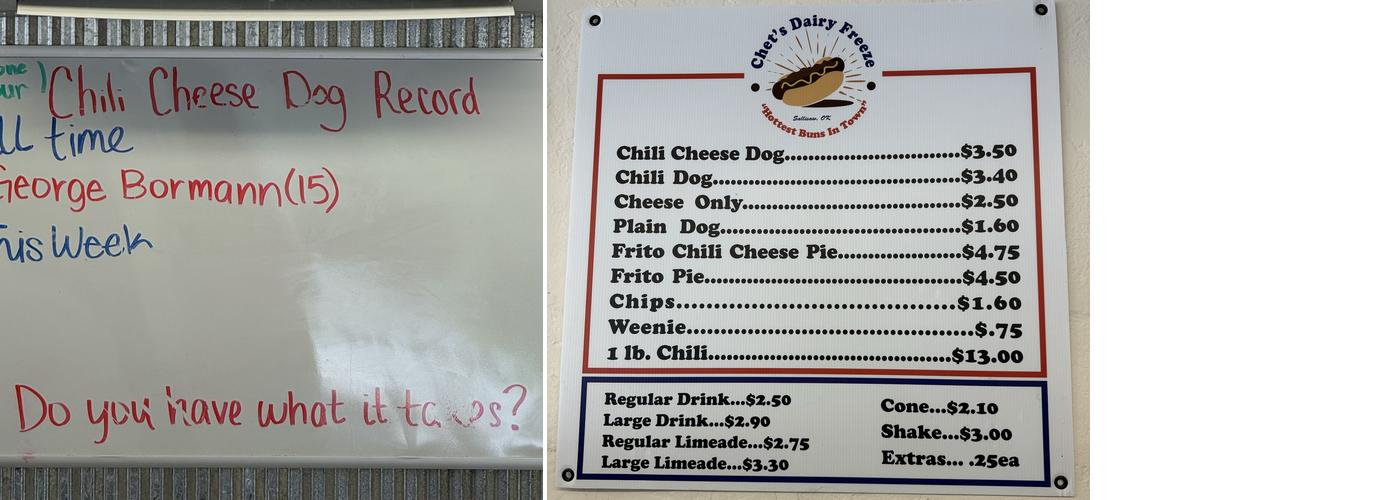 one
our) Chili Cheese Dog Record
ll time
George Bormann (15)
his Week
Do you have what it takes?
Chet's Dairy Freeze
Sallisaw, OK
"Hottest Buns In Town"
Chili Cheese Dog................................$3.50
Chili Dog................................$3.40
Cheese Only................................$2.50
Plain Dog................................$1.60
Frito Chili Cheese Pie................$4.75
Frito Pie................................$4.50
Chips................................$1.60
Weenie................................$.75
1 lb. Chili................................$13.00
Regular Drink...$2.50
Large Drink...$2.90
Regular Limeade...$2.75
Large Limeade...$3.30
Cone...$2.10
Shake...$3.00
Extras... .25ea